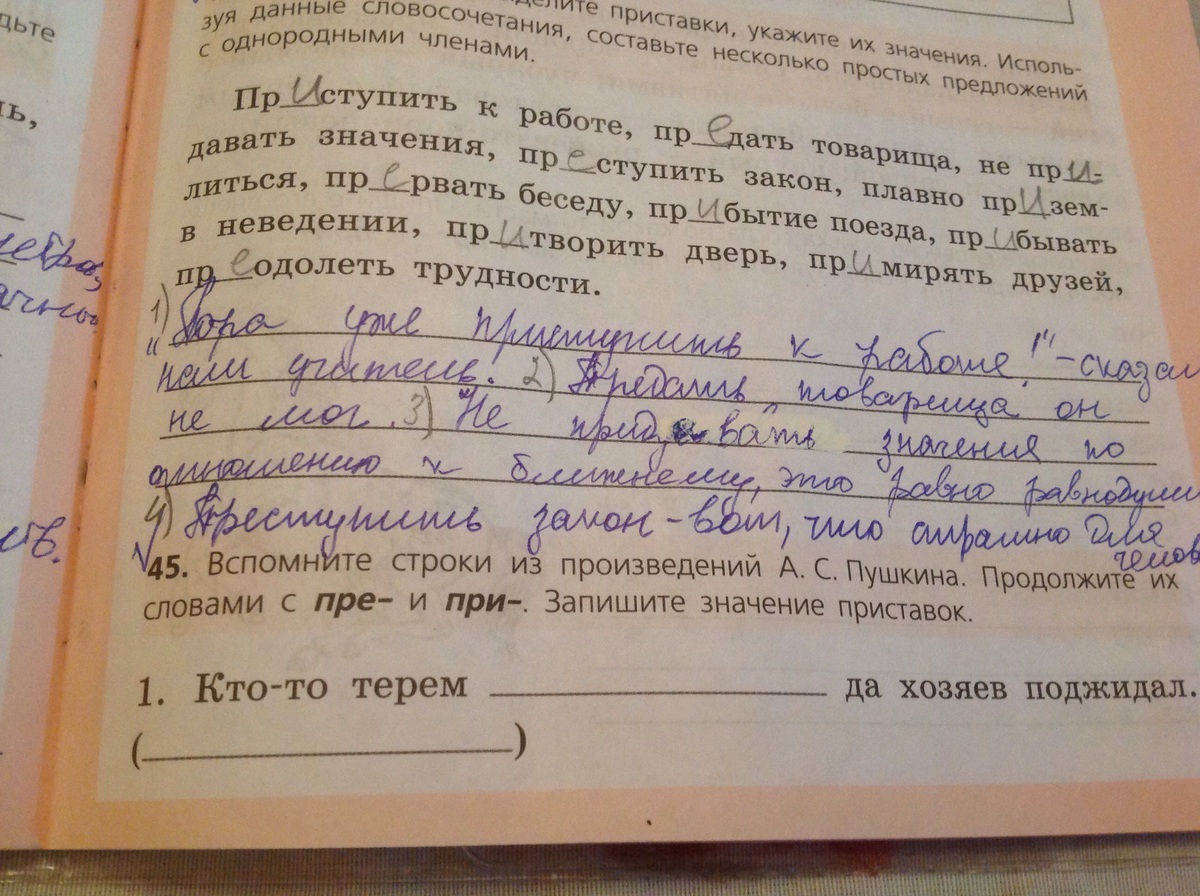 дьте
делите приставки, укажите их значения. Исполь-
зуя данные словосочетания, составьте несколько простых предложений
с однородными членами.
Приступить к работе, предать товарища, не при-
давать значения, преступить закон, плавно призем-
литься, прервать беседу, прибытие поезда, прибывать
в неведении, притворить дверь, примирять друзей,
преодолеть трудности.
1) "Пора уже приступить к работе!" - сказал
нам учитель. 2) Предать товарища он
не мог. 3) Не придавать значения по
отношению к ближнему, это равно
4) Преступить закон - вот, что страшно для
45. Вспомните строки из произведений А. С. Пушкина. Продолжите их
словами с пре- и при-. Запишите значение приставок.
1. Кто-то терем ____ да хозяев поджидал.
(____)